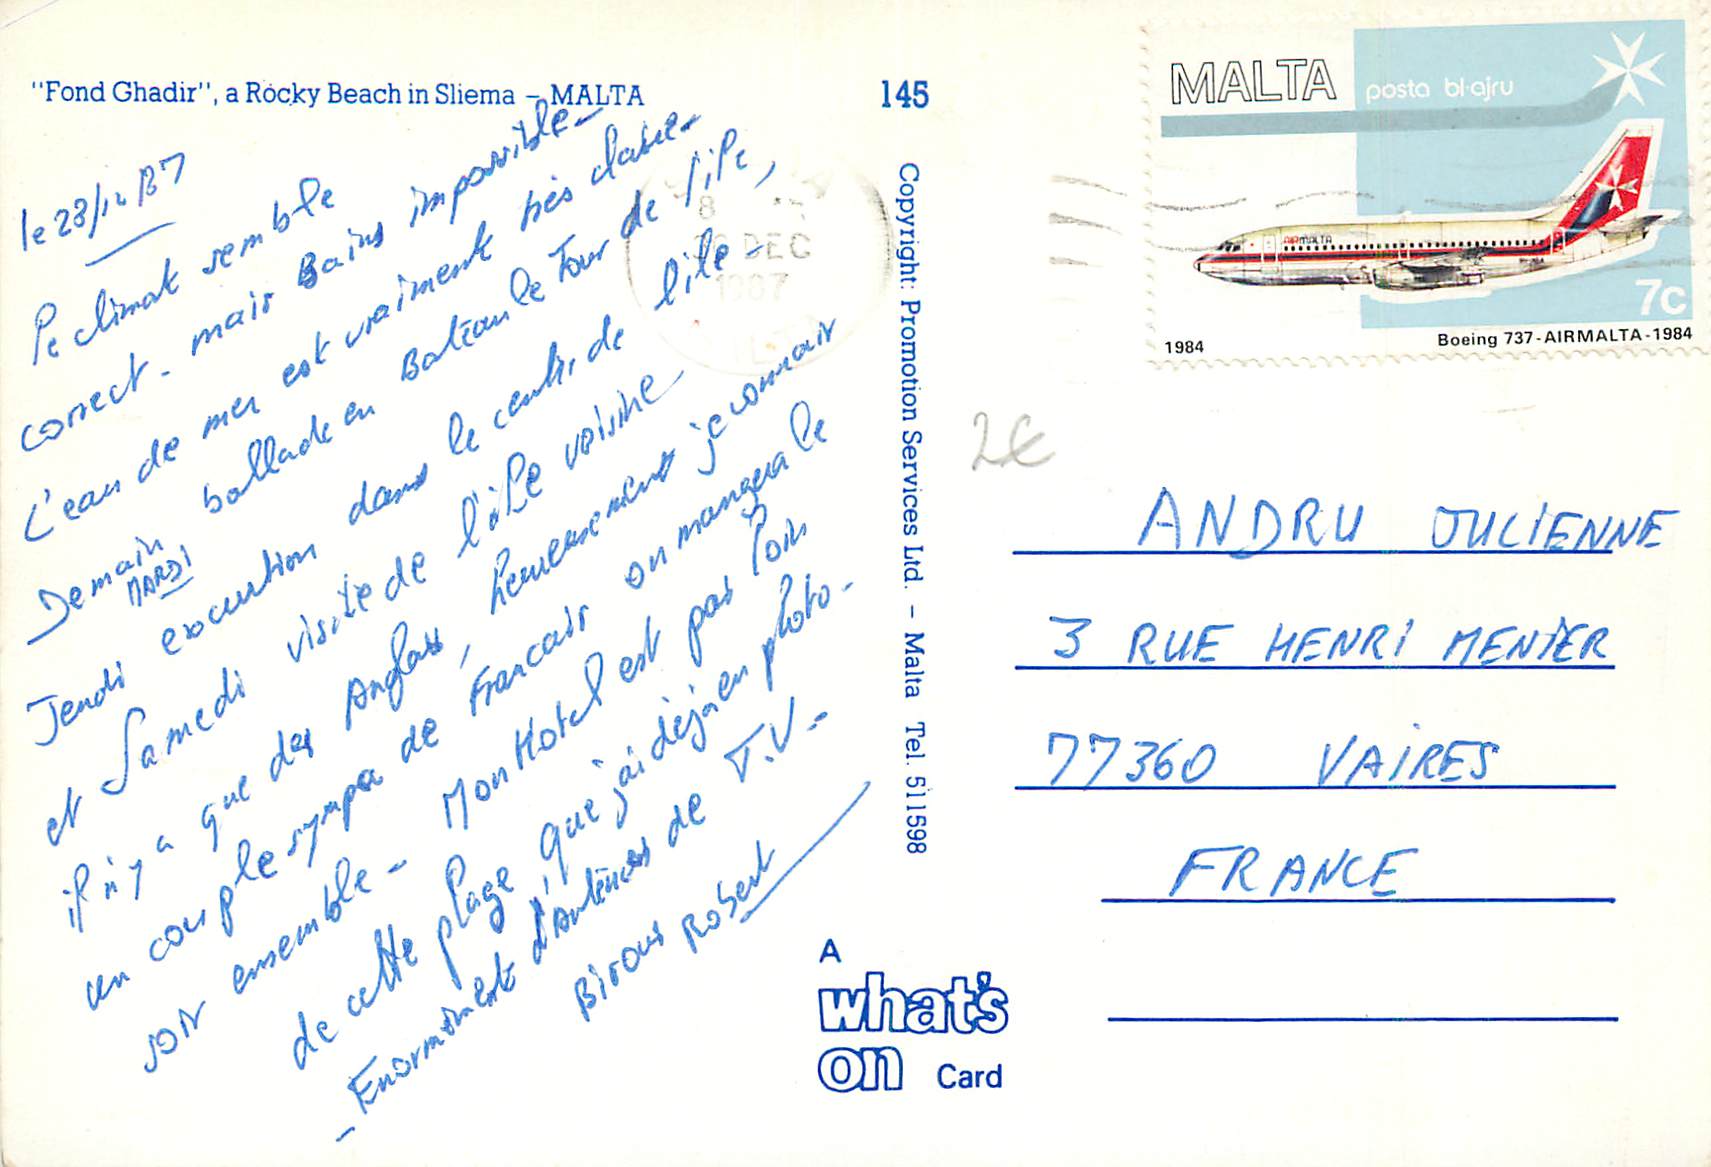 "Fond Ghadir", a Rocky Beach in Sliema – MALTA
145
le 28/12/87
le climat semble
correct - mais Bains impossible -
L'eau de mer est vraiment très claire -
Demain ballade en Bateau le Tour de l'ile,
MARDI
Jeudi excurtion dans le centre de l'île -
et Samedi visite de l'île voisine
il n'y a que des Anglais, heureusement je connais
un couple sympa de Francais on mangera le
soir ensemble - Mon Hotel est pas loin
de cette plage, que j'ai déjà en photo -
- Enormément d'Antènes de T.V -
Bisous Robert
Copyright: Promotion Services Ltd. – Malta Tel. 511598
A
what's
on Card
MALTA posta bl-ajru
AIRMALTA
7c
1984
Boeing 737-AIRMALTA-1984
8
DEC
1987
2€
ANDRU JULIENNE
3 RUE HENRI MENIER
77360 VAIRES
FRANCE